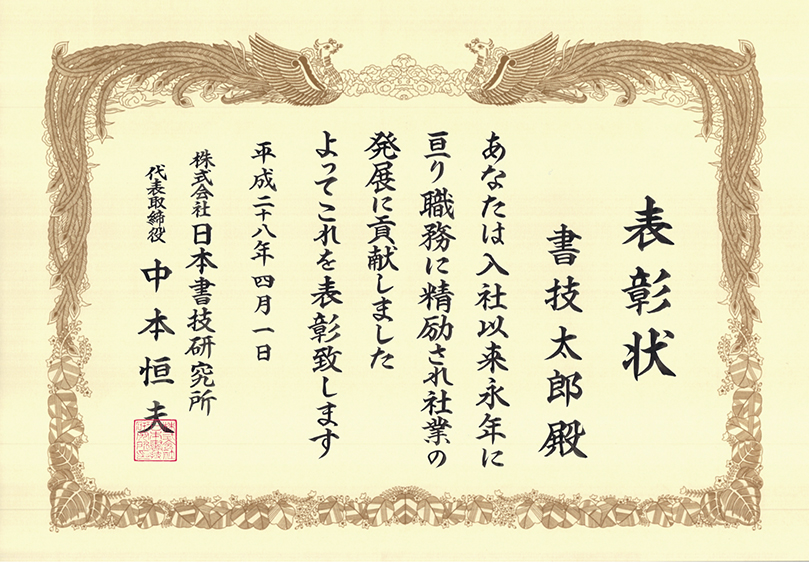 表彰状
書技太郎殿
あなたは入社以来永年に
亘り職務に精励され社業の
発展に貢献しました
よってこれを表彰致します
平成二十八年四月一日
株式会社日本書技研究所
代表取締役 中本恒夫